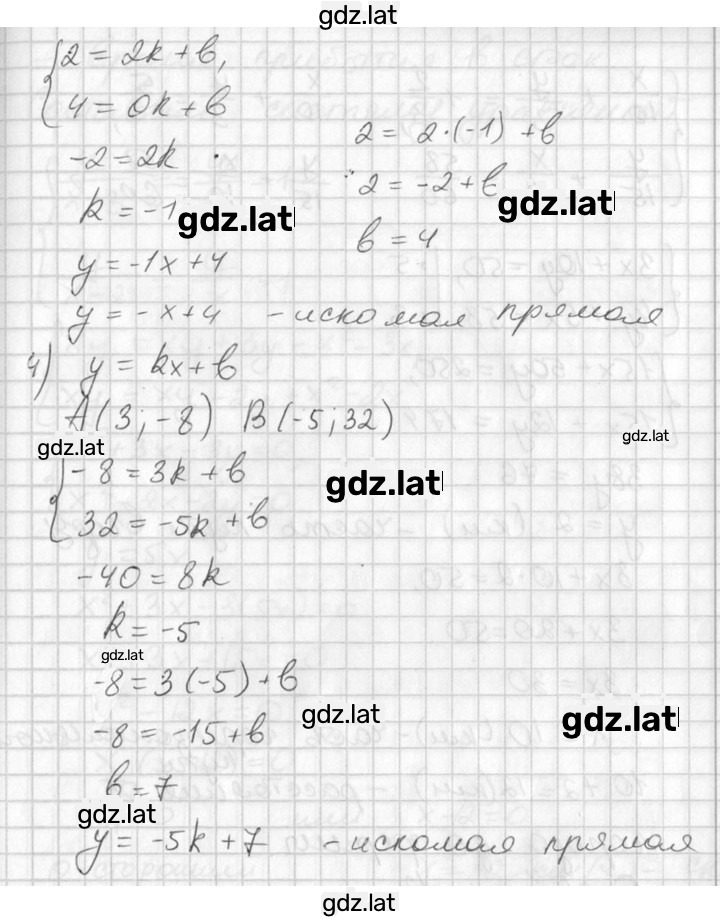 gdz.lat
{2 = 2k + b,
4 = 0k + b
-2 = 2k
k = -1
2 = 2·(-1) + b
2 = -2 + b
b = 4
gdz.lat
gdz.lat
y = -1x + 4
y = -x + 4 - искомая прямая
4) y = kx + b
A(3; -8) B(-5; 32)
gdz.lat
gdz.lat
{-8 = 3k + b
32 = -5k + b
gdz.lat
-40 = 8k
k = -5
gdz.lat
-8 = 3(-5) + b
-8 = -15 + b
gdz.lat
gdz.lat
b = 7
gdz.lat
y = -5k + 7 - искомая прямая
gdz.lat